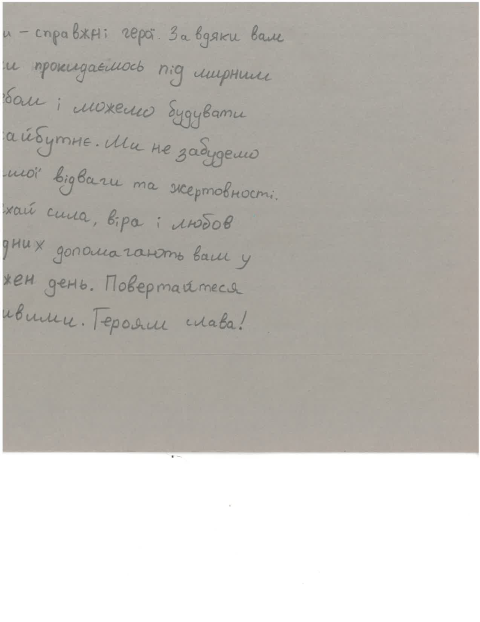 и – справжні герої. Завдяки вам
и прокидаємось під мирним
бом і можемо будувати
айбутнє. Ми не забудемо
шої відваги та жертовності.
хай сила, віра і любов
дних допомагають вам у
жен день. Повертайтеся
ивими. Героям слава!